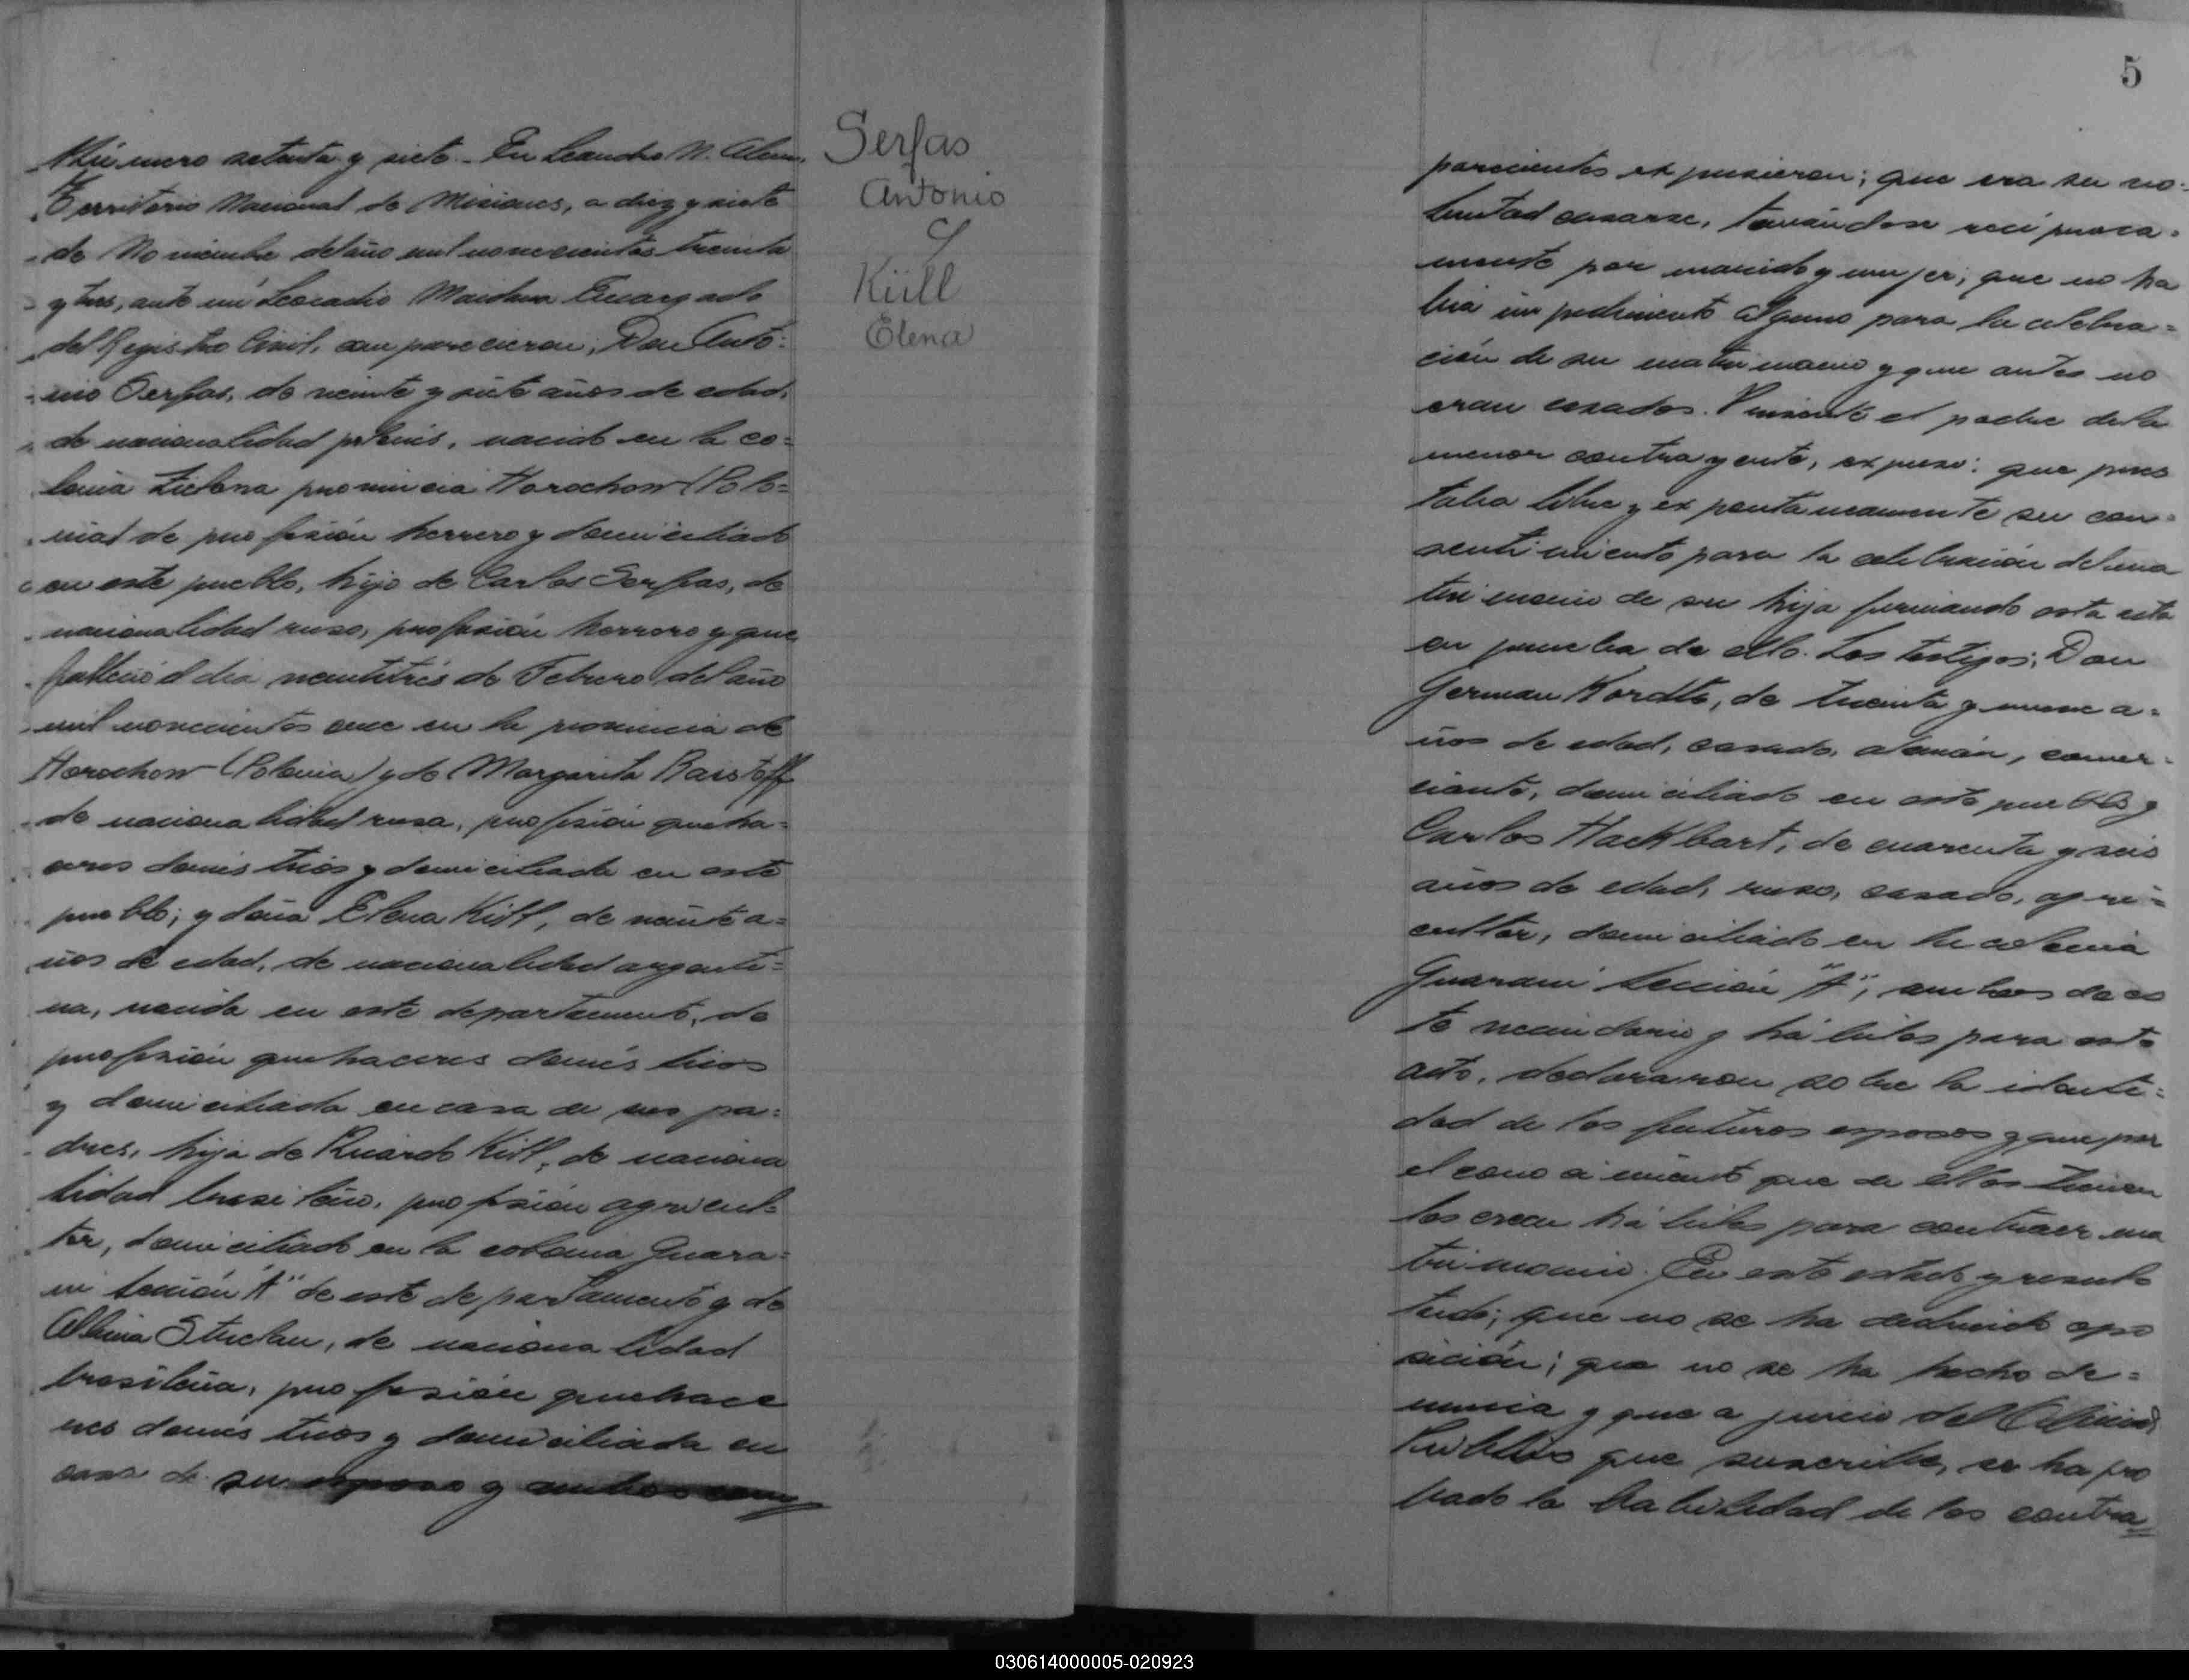 Número setenta y siete. En Leandro N. Alem,
Territorio Nacional de Misiones, a diez y siete
de Noviembre del año mil novecientos treinta
y tres, ante mí Leocadio Maidana Encargado
del Registro Civil, comparecieron; Don Anto=
nio Serfas, de veinte y siete años de edad,
de nacionalidad polonés, nacido en la co=
lonia Liclona provincia Horochow (Polo=
nia) de profesión herrero y domiciliado
en este pueblo, hijo de Carlos Serfas, de
nacionalidad ruso, profesión herrero y que
falleció el dia veintitrés de Febrero del año
mil novecientos once en la provincia de
Horochow (Polonia) y de Margarita Raistoff
de nacionalidad rusa, profesión queha=
ceres domésticos y domiciliada en este
pueblo; y doña Elena Küll, de veinte a=
ños de edad, de nacionalidad argenti=
na, nacida en este departamento, de
profesión quehaceres domésticos
y domiciliada en casa de sus pa=
dres, hija de Ricardo Küll, de naciona
lidad brasileño, profesión agricul=
tor, domiciliado en la colonia Guara=
ní sección "A" de este departamento y de
Albina , de nacionalidad
brasileña, profesión quehace
res domésticos y domiciliada en
casa de su esposo y ambos com
Serfas
Antonio
y
Küll
Elena
5
parecientes expusieron; que era su vo=
luntad casarse, tomándose recíproca=
mente por marido y mujer; que no ha
bía impedimento alguno para la celebra=
ción de su matrimonio y que antes no
eran casados. Presente el padre de la
menor contrayente, expuso: que pres
taba libre y expontaneamente su con=
sentimiento para la celebración del ma
trimonio de su hija firmando esta acta
en prueba de ello. Los testigos; Don
German Kordts, de treinta y nueve a=
ños de edad, casado, alemán, comer=
ciante, domiciliado en este pueblo y
Carlos Hackbart, de cuarenta y seis
años de edad, ruso, casado, agri=
cultor, domiciliado en la colonia
Guaraní sección "A", ambos de es
te vecindario y hábiles para este
acto, declararon sobre la identi=
dad de los futuros esposos y que por
el conocimiento que de ellos tienen
los creen hábiles para contraer ma
trimonio. En este estado y resul
tando; que no se ha deducido opo
sición; que no se ha hecho de=
nuncia y que a juicio del Oficial
Público que suscribe, se ha pro
bado la habilidad de los contra=
030614000005-020923